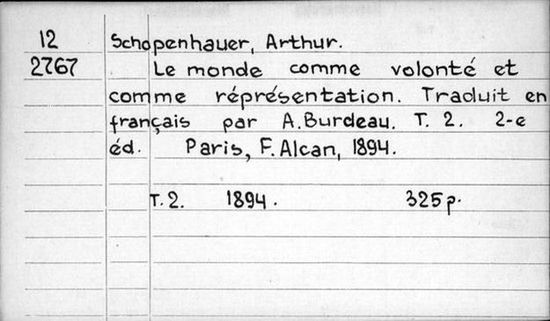 12 Schopenhauer, Arthur.
2767 Le monde comme volonté et
comme réprésentation. Traduit en
français par A. Burdeau. T. 2. 2-e
éd. Paris, F. Alcan, 1894.
T. 2. 1894. 325 p.